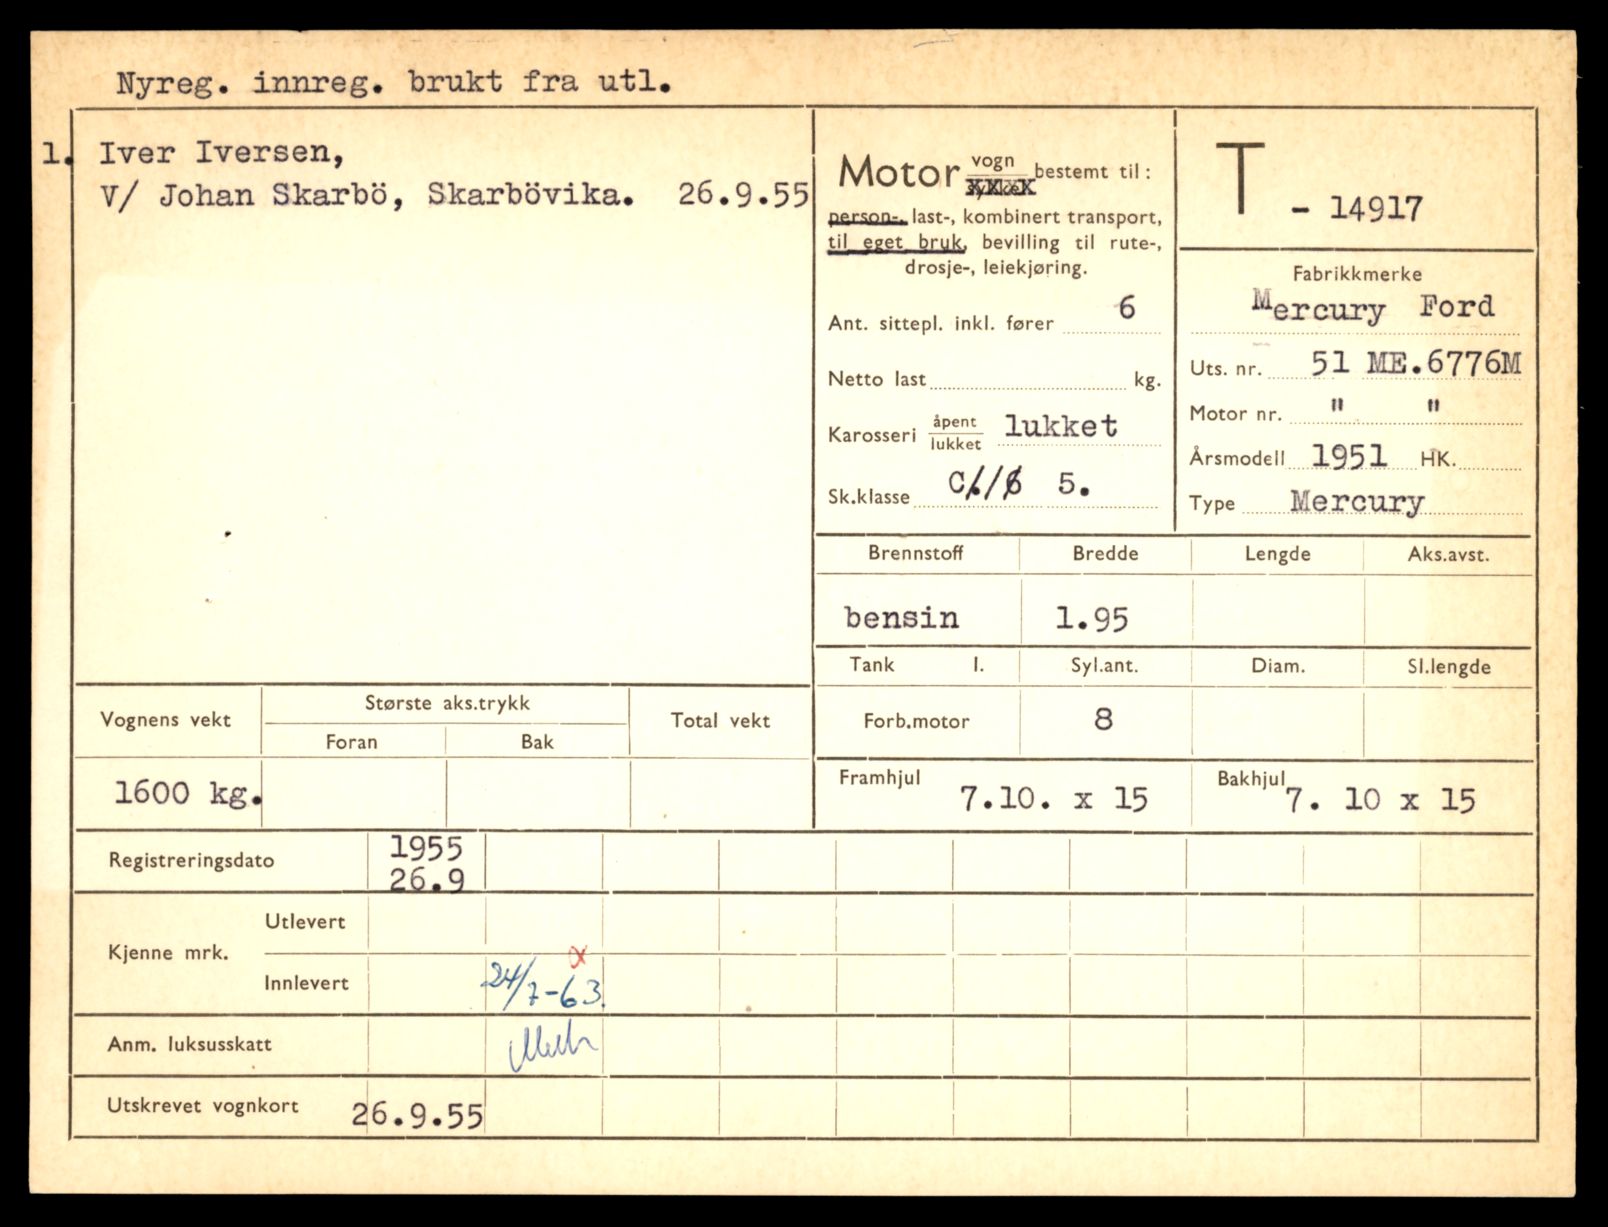 Nyreg. innreg. brukt fra utl.
1. Iver Iversen,
V/ Johan Skarbö, Skarbövika. 26.9.55
Motor vogn bestemt til:
person-, last-, kombinert transport,
til eget bruk, bevilling til rute-,
drosje-, leiekjøring.
Ant. sittepl. inkl. fører 6
Netto last kg.
Karosseri åpent lukket lukket
Sk.klasse C 5.
T - 14917
Fabrikkmerke
Mercury Ford
Uts. nr. 51 ME.6776M
Motor nr. " "
Årsmodell 1951 HK.
Type Mercury
Brennstoff Bredde Lengde Aks.avst.
bensin 1.95
Tank l. Syl.ant. Diam. Sl.lengde
Forb.motor 8
Framhjul 7.10. x 15 Bakhjul 7. 10 x 15
Vognens vekt Største aks.trykk Total vekt
Foran Bak
1600 kg.
Registreringsdato 1955
26.9
Kjenne mrk. Utlevert
Innlevert 24/7-63.
Anm. luksusskatt
Utskrevet vognkort 26.9.55